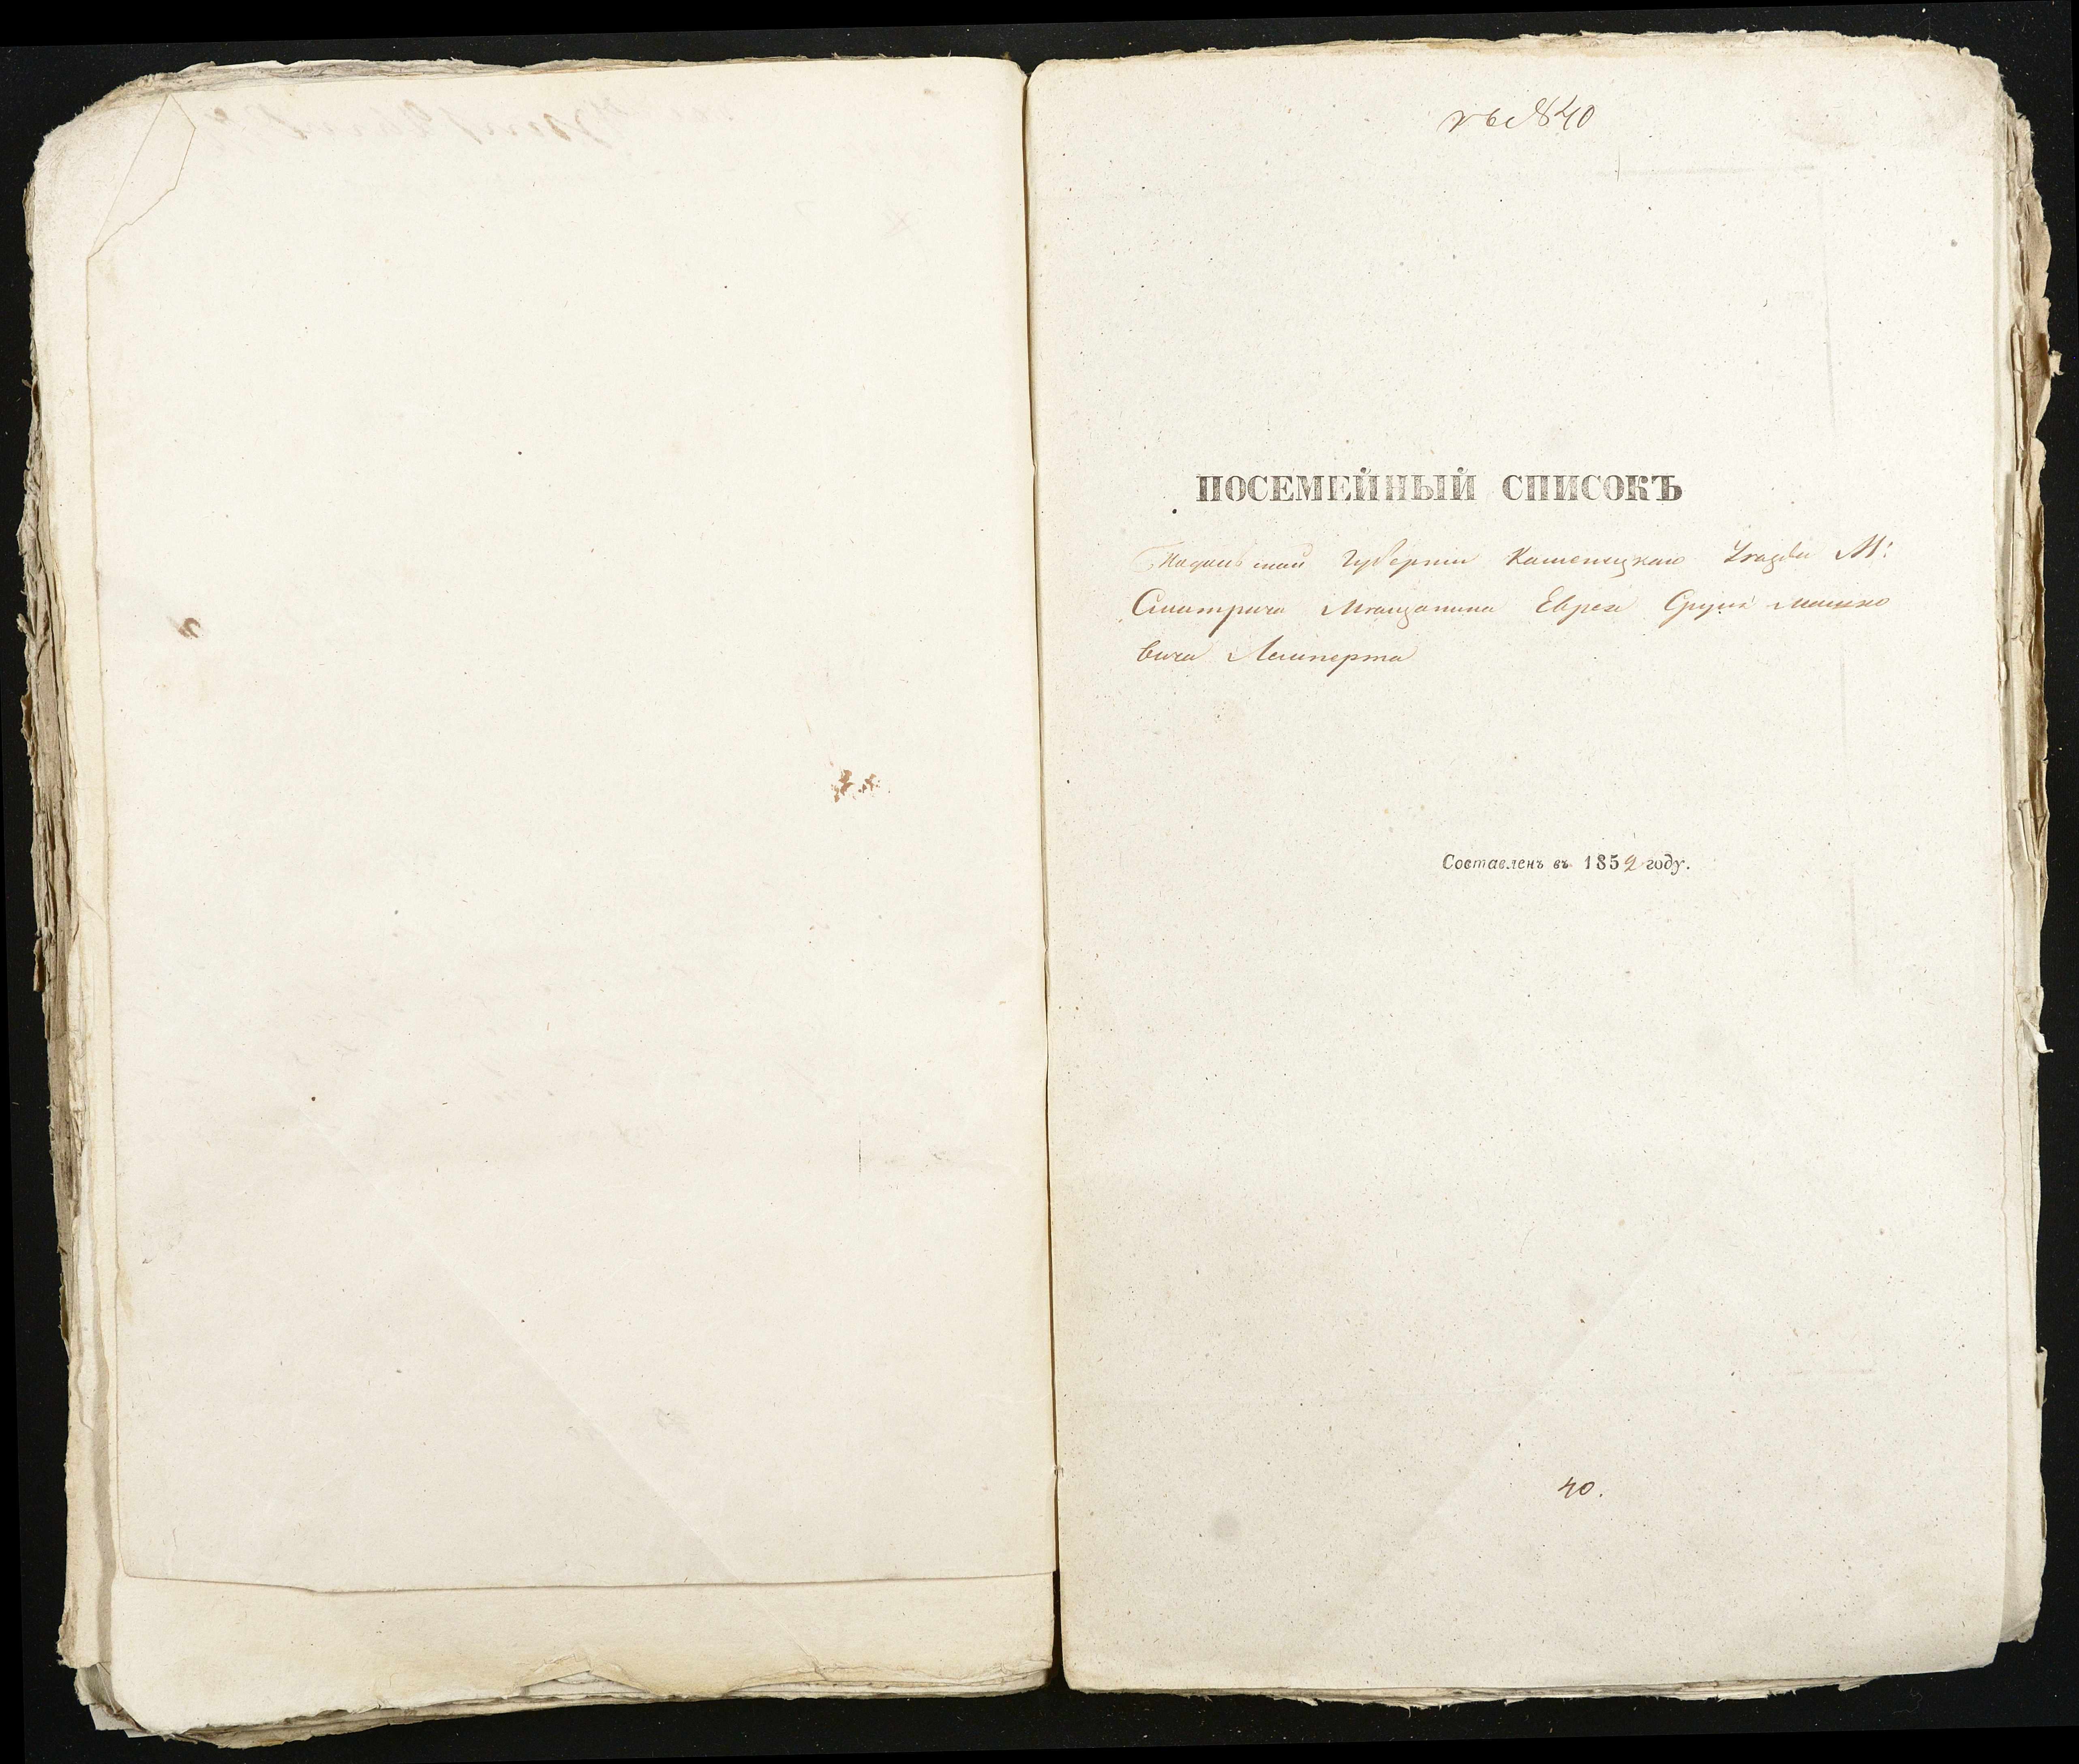 къ № 40
ПОСЕМЕЙНЫЙ СПИСОКЪ
Подольской Губерніи Каменецкаго Уезда М:
Смотрича Мещанина Еврея Сруля Мошко
вича Лемперта
Составленъ въ 1852 году.
40.